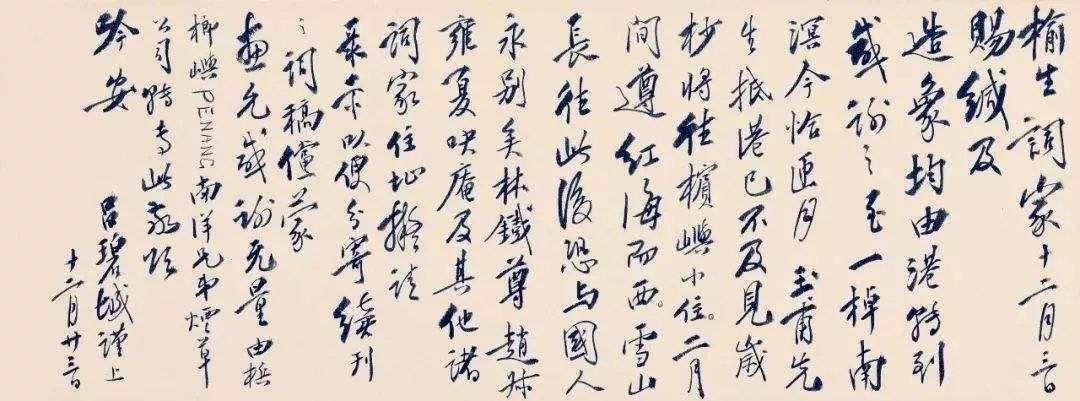 榆生詞家十二月三日
賜緘及
造象均由港轉到
感謝之至一棹南
溟今恰匝月玉甫先
生抵港已不及見歲
杪將往檳嶼小住。二月
間遵紅海而西。雪山
長往此後恐与國人
永别矣林鐵尊趙
雍夏吷庵及其他諸
詞家住址擬請
示以便分寄續刊
之詞稿儻蒙
感謝无量由梹
榔嶼PENANG南洋兄弟煙草
公司轉專此敬頌
吟安
呂碧城謹上
十二月廿三日